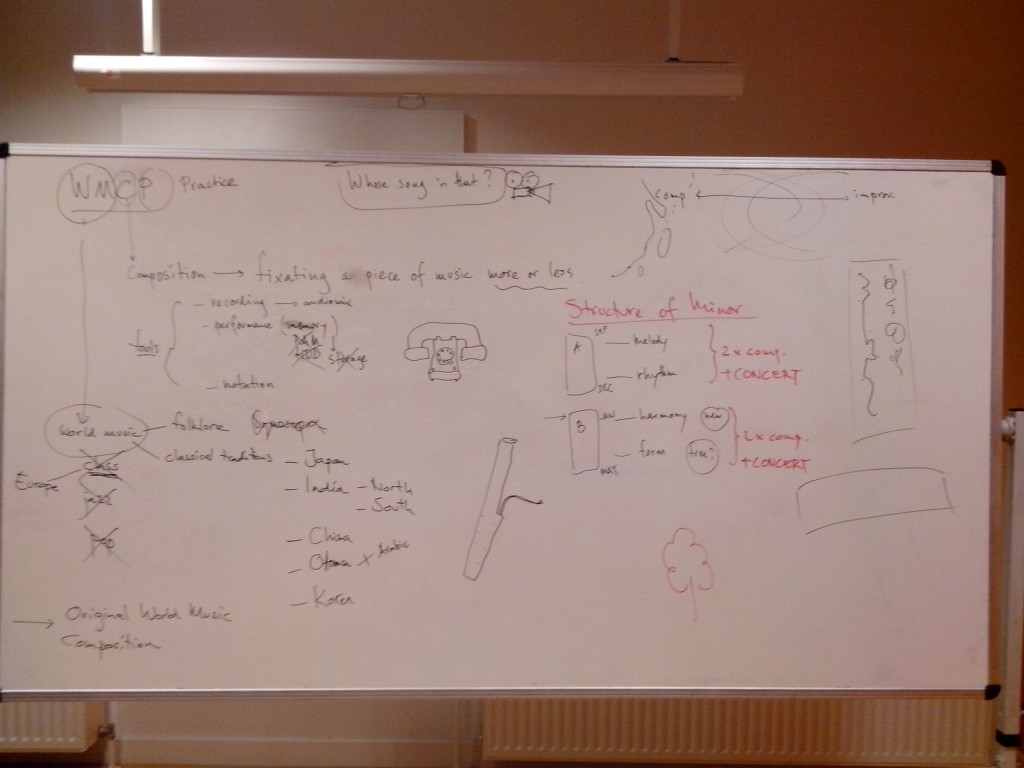 WMCP Practice
Whose song is that?
comp improv.
Composition → fixating a piece of music more or less
tools
- recording → audiomix
- performance (memory)
storage
- notation
Structure of Minor
A
SEP
- melody
- rhythm
DEC
2x comp.
+CONCERT
→ B
- harmony
- form
free?
2x comp.
+CONCERT
World music
- folklore
classical traditions
- Japan
- India - North
- South
- China
- Otoman x Arabic
- Korea
Europe
class
jazz
Pop
→ Original World Music
Composition